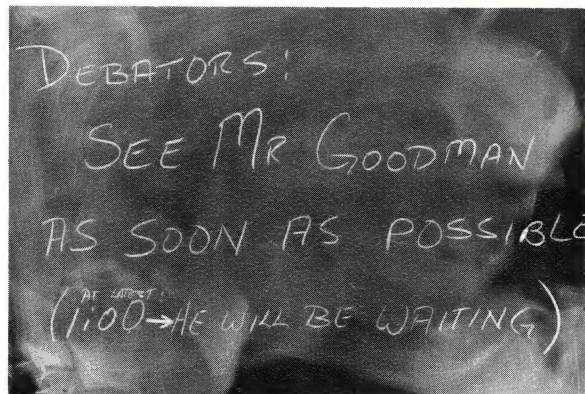 DEBATORS:
SEE MR GOODMAN
AS SOON AS POSSIBLE
AT LATEST!
(1:00→HE WILL BE WAITING)